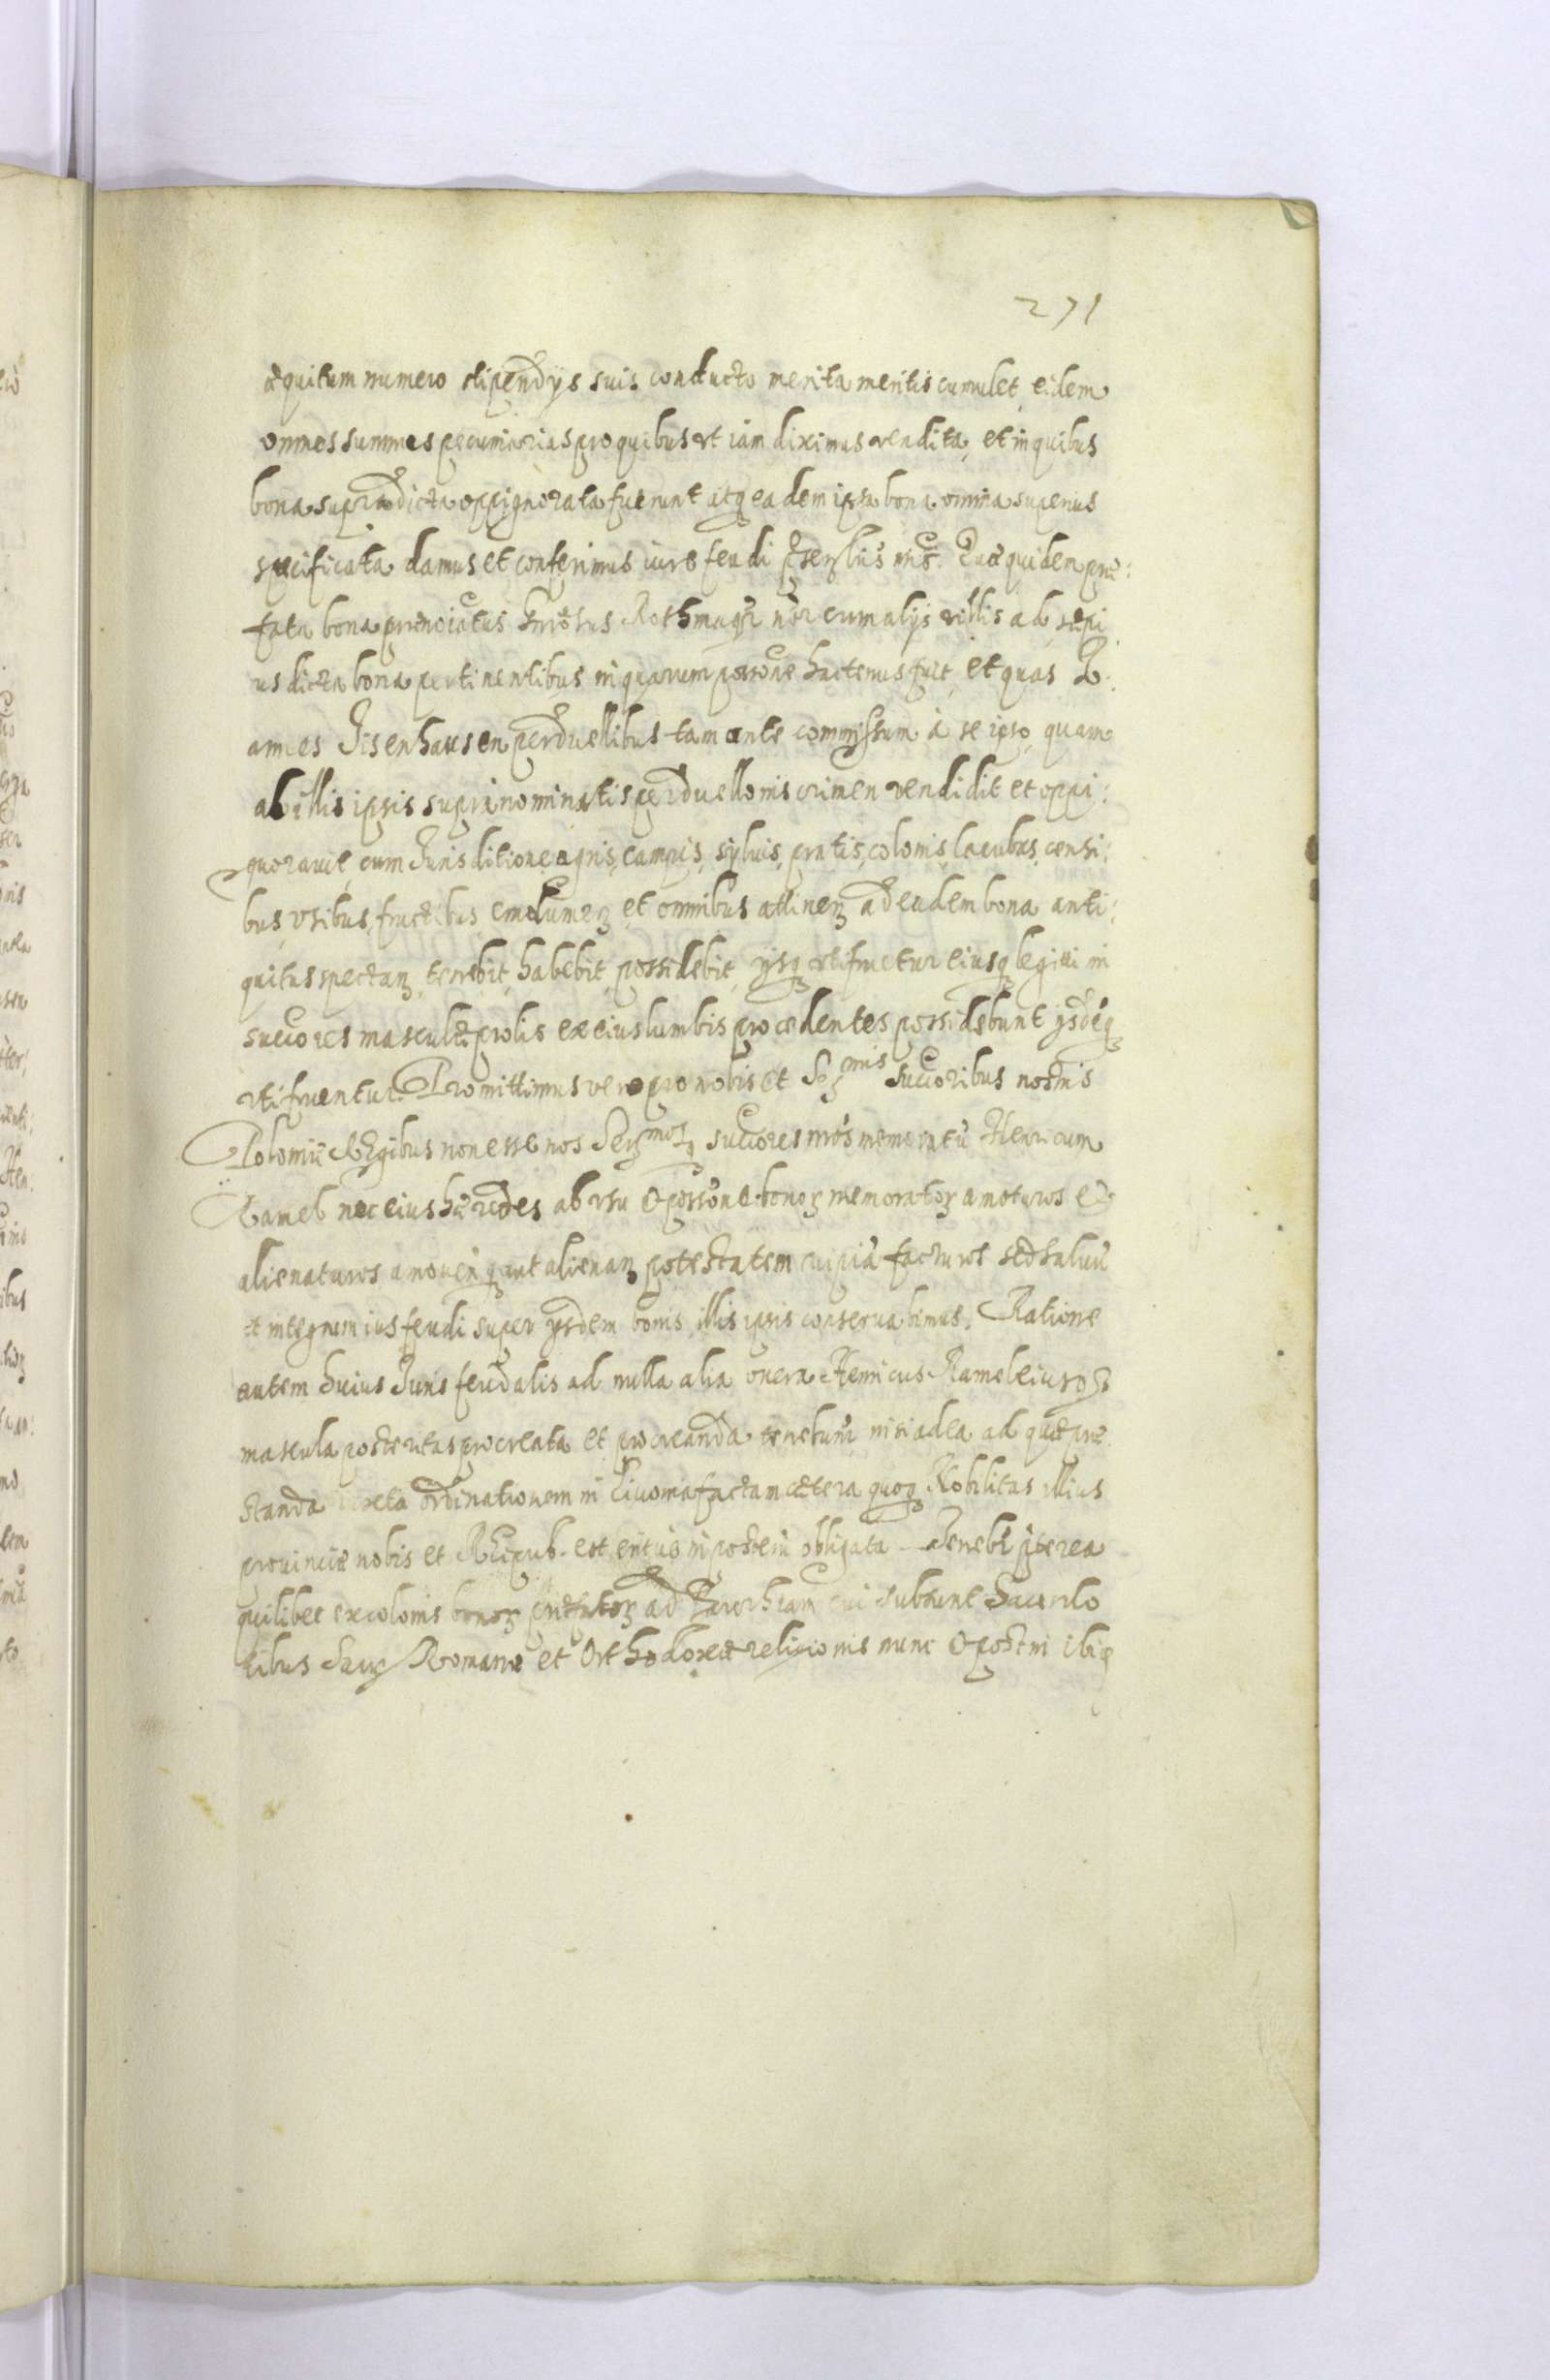 271
æquitum numero stipendijs suis conducto merita meritis cumulet, eidem
omnes summas pecuniarias pro quibus ut iam diximus vendita, et in quibus
bona supradicta oppignorata fuerunt atq eadem ipsa bona omnia superius
specificata damus et conferimus iure feudi Quæ quidem præ:
fata bona prænoiatus Rothmagr nr cum alijs villis ad sæpi
us dicta bona pertinentibus in quarum possone hactenus fuit, et quas
annes Tisenhausen perduellibus tam ante commissum à se ipso quam
ab illis ipsis supranominatis perduellonis crimen vendidit et oppi:
gnorauit, cum Jurisditione agris, campis, syluis, pratis, colonis, lacubus, censi:
bus, vsibus, fructibus, emolumen et omnibus attinen ad eadem bona anti:
quitus spectan, tenebit, habebit, possidebit, ijsq vtifruetur eiusq legitti in
succores masculæ prolis ex eius lumbis procedentes possidebunt ijsdeq
vtifruentur. Promittimus vero pro nobis et Sermis succoribus nostris
Poloniæ Regibus non esse nos Sermosq succores nros memoratu Henricum
Ramel nec eius hæredes ab vsu & possone bonor memorator amoturos &
alienaturos amouen aut alienan potestatem cuipia facturos sed saluu
et integrum ius feudi super ijsdem bonis illis ipsis conseruabimus. Ratione
autem huius Juris feudalis ad nulla alia onera Henricus Ramel eiusq
mascula posteritas procreata et procreanda tenebunr nisi ad ea ad quæ præ
standa iuxta ordinationem in Liuonia factam cætera quoq Nobilitas illius
prouinciæ nobis et Reipub. est, erit in postem obligata Tenebr pterea
quilibet ex colonis bonor præfator ad Parochiam cui subsunt Sacerdo
tibus Sacr Romanæ et Orthodoxæ religionis nunc & postm ibiq